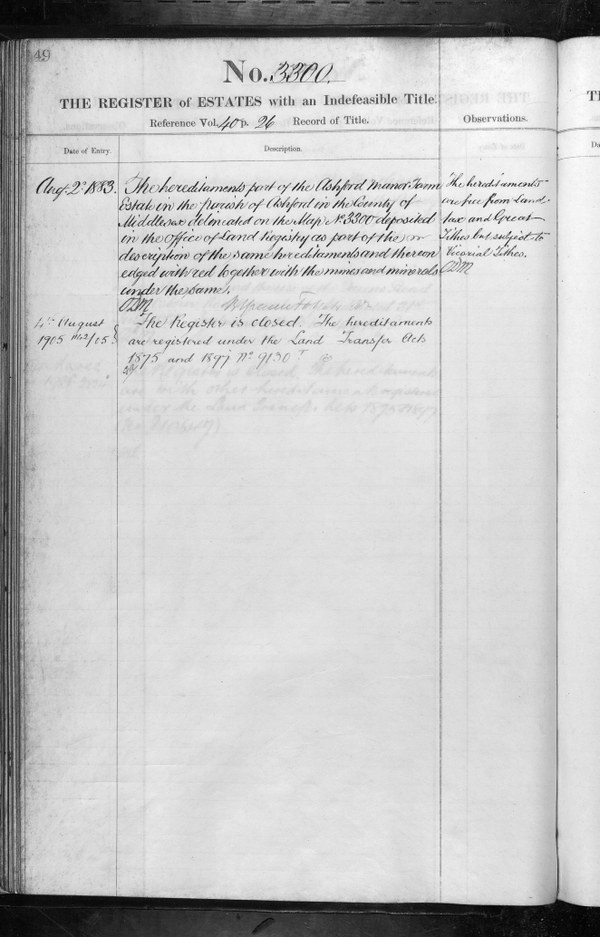 49
No. 3300.
THE REGISTER of ESTATES with an Indefeasible Title.
Reference Vol. 40 p. 26 Record of Title.
Observations.
Date of Entry.
Description.
Aug. 2d 1883.
The hereditaments part of the Ashford Manor Farm
Estate in the parish of Ashford in the County of
Middlesex delineated on the Map No. 3300 deposited
in the Office of Land Registry as part of the
description of the same hereditaments and thereon
edged with red together with the mines and minerals
under the same.
The hereditaments
are free from Land
tax and Great
Tithes but subject to
Vicarial Tithes.
August
1905
The Register is closed. The hereditaments
are registered under the Land Transfer Acts
1875 and 1897 No 9130